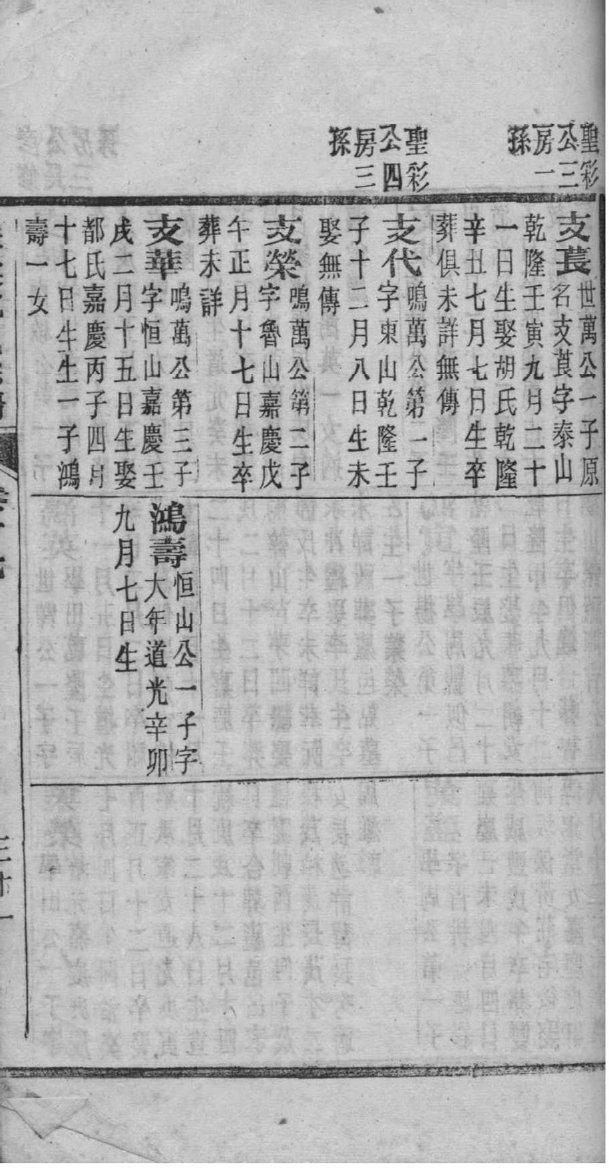 聖彩
公三
房一
孫
聖彩
公四
房三
孫
支萇世萬公一子原
名支萇字泰山
乾隆壬寅九月二十
一日生娶胡氏乾隆
辛丑七月七日生卒
葬俱未詳無傳
支代鳴萬公第一子
字東山乾隆壬
子十二月八日生未
娶無傳
支榮鳴萬公第二子
字魯山嘉慶戊
午正月十七日生卒
葬未詳
支華鳴萬公第三子
字恒山嘉慶壬
戌二月十五日生娶
鄒氏嘉慶丙子四月
十七日生生一子鴻
壽一女
鴻壽恒山公一子字
大年道光辛卯
九月七日生